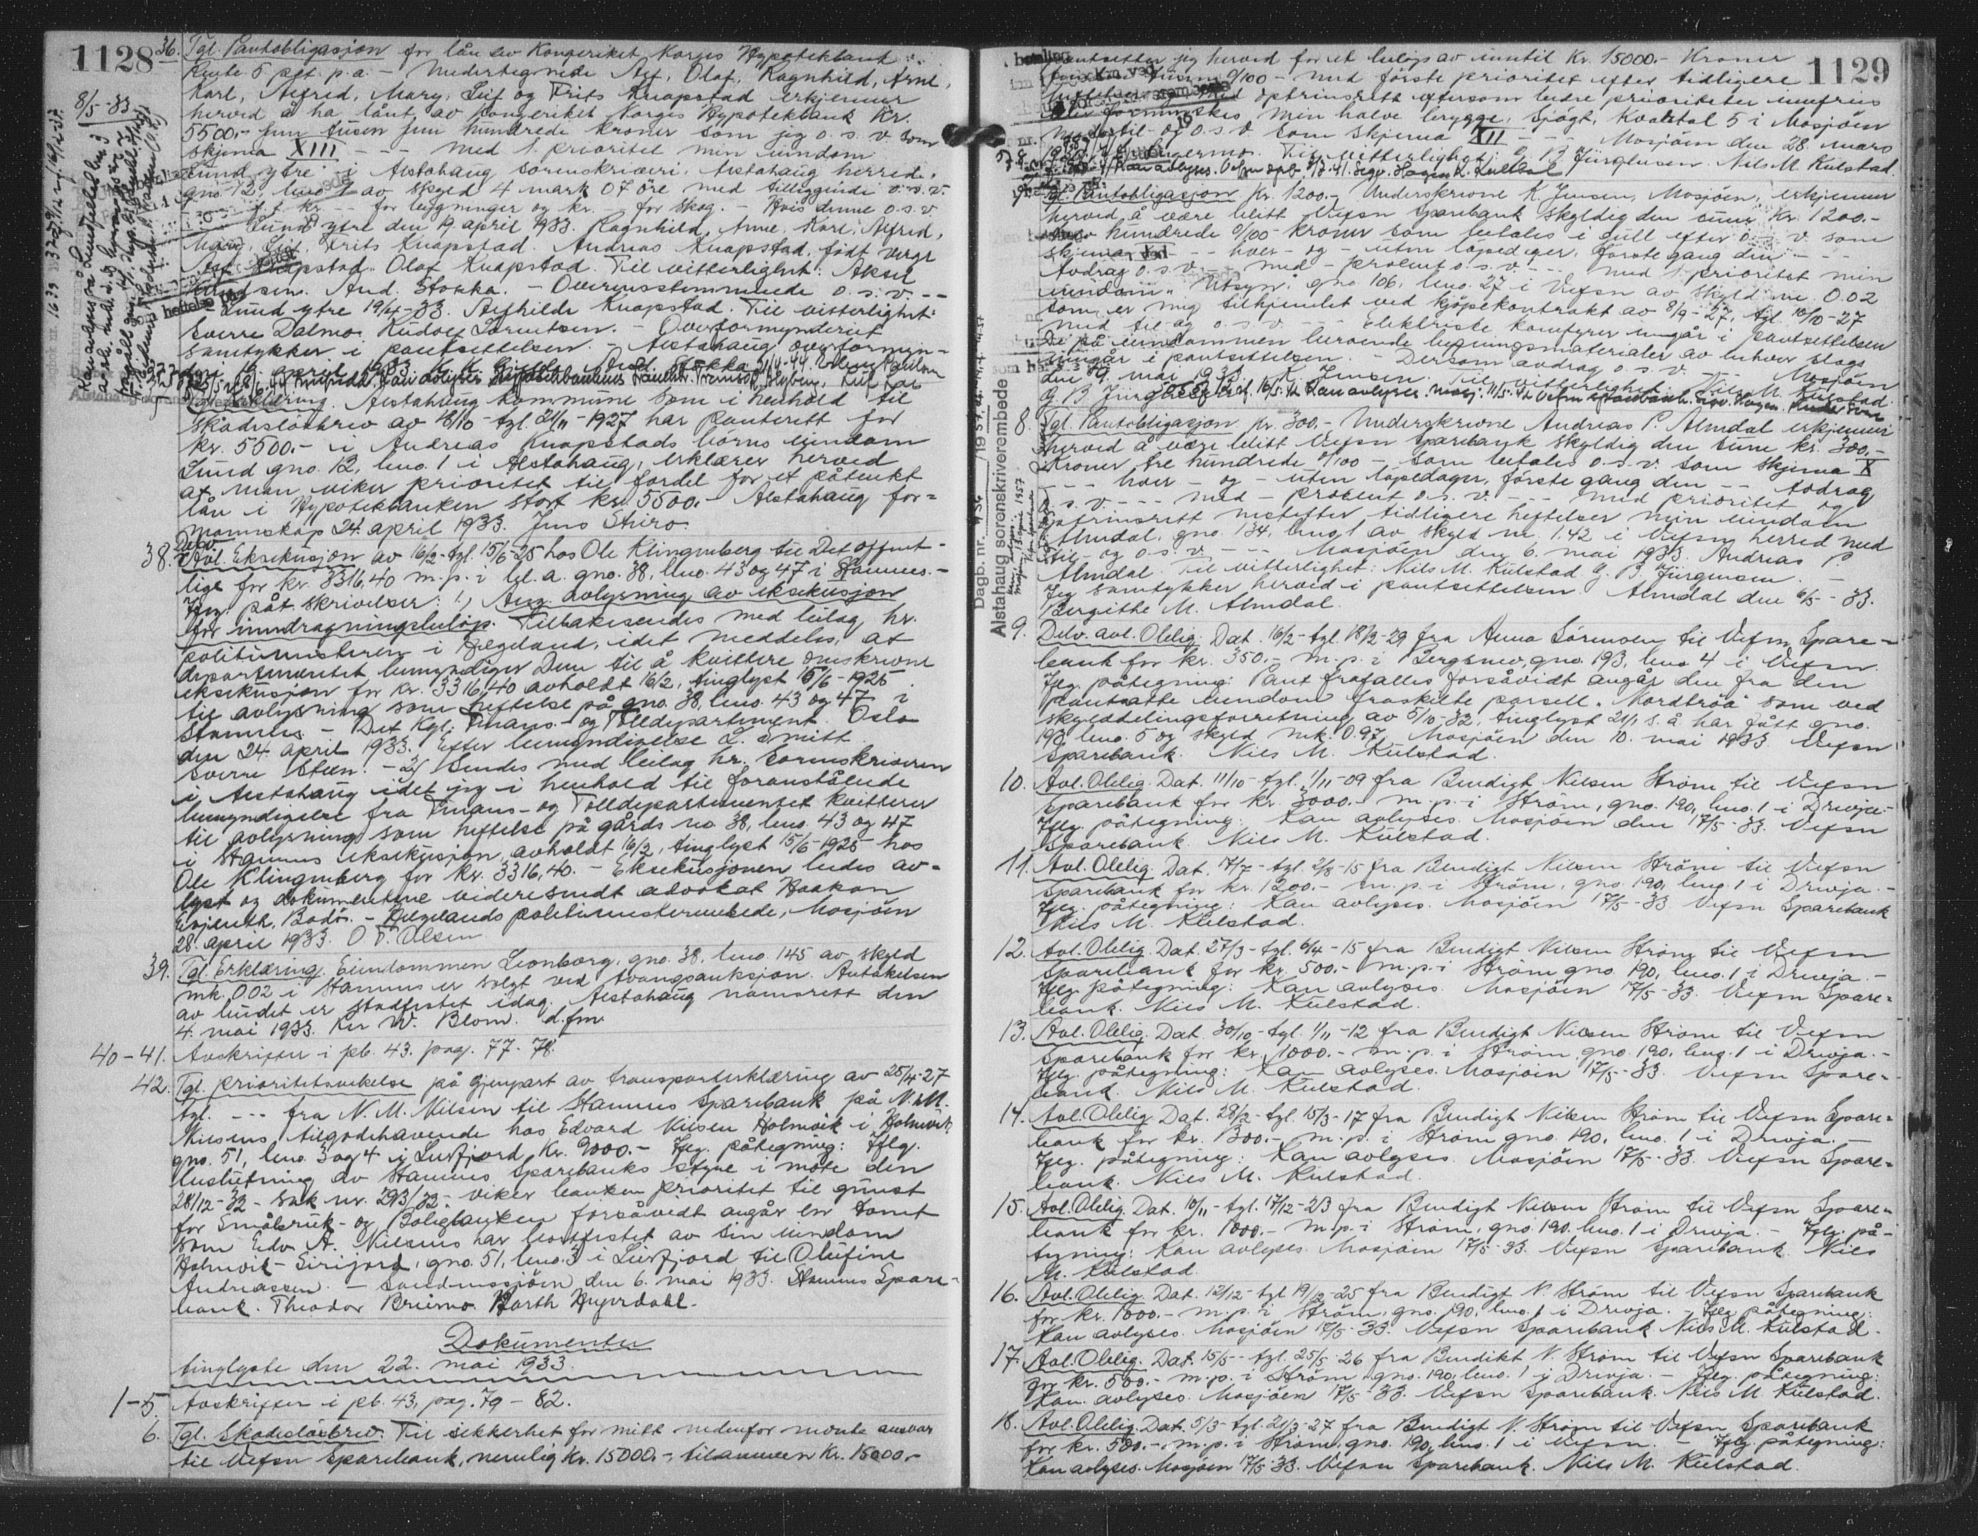 1128
8/5-33
36. Tgl. Pantobligasjon for lån av Kongeriket Norges Hypotekbank:
Rente 5 pct. p.a. - Undertegnede Alf, Olaf, Ragnhild, Arne,
Karl, Alfred, Mary, Leif og Frits Knapstad erkjenner
herved å ha lånt av Kongeriket Norges Hypotekbank Kr.
5500,- fem tusen fem hundrede kroner som jeg o.s.v. som
skjema XIII - - - med 1. prioritet min eiendom
Lund ytre i Alstahaug sorenskriveri, Alstahaug herred,
gno 12, bno 1 av skyld 4 mark 07 øre med tilliggende o.s.v.
kr. - for bygninger og kr. - for skog. - Hvis denne o.s.v.
Lund ytre den 19 april 1933. Ragnhild, Arne, Karl, Alfred,
Mary, Leif, Frits Knapstad. Andreas Knapstad, født verge
Alf Knapstad. Olaf Knapstad. Til vitterlighet: Aksel
And. Stokka. - Overensstemmende o.s.v. - -
Lund ytre 19/4-33. Alfhilde Knapstad. Til vitterlighet:
Sverre Dalmo. Rudolf Lorentsen. - Overformynderiet
samtykker i pantsettelsen. - Alstahaug overformyn-
37. Tgl. Erklæring. Alstahaug kommune som i henhold til
skadesløsbrev av 18/10 - tgl. 21/11-1927 har panterett for
kr. 5500.- i Andreas Knapstads barns eiendom
Lund gno. 12, bno. 1 i Alstahaug, erklærer herved
at man viker prioritet til fordel for et påtenkt
lån i Hypotekbanken stort kr. 5500.- Alstahaug for-
mannskap 24. april 1933. Jens Sturo.
38. Delv. Avl. Eksekusjon av 16/2 - tgl. 15/6-25 hos Ole Klingenberg til Det offent-
lige for kr. 3316,40 m.p. i bl.a. gno. 38, bno. 43 og 47 i Stamnes. -
Iflg. påt. skrivelser: 1) Ang. avlysning av eksekusjon
for inndragningsbeløp. Tilbakesendes med bilag hr.
politimesteren i Helgeland, idet meddeles, at
departementet bemyndiger Dem til å kvittere omskrevne
eksekusjon for kr. 3316,40 avholdt 16/2, tinglyst 15/6-1925
til avlysning som heftelse på gno. 38, bno. 43 og 47 i
Stamnes - Det Kgl. Finans- og Tolldepartement. Oslo
den 24. april 1933. Efter bemyndigelse L. Smitt
Sverre Steen. - 2) Sendes med bilag hr. sorenskriveren
i Alstahaug idet jeg i henhold til foranstående
bemyndigelse fra Finans- og Tolldepartementet kvitterer
til avlysning som heftelse på gårds no. 38, bno. 43 og 47
i Stamnes eksekusjon avholdt 16/2, tinglyst 15/6-1925 hos
Ole Klingenberg for kr. 3316,40. - Eksekusjonen bedes av-
lyst og dokumentene videresendt advokat Haakon
Evjenth, Bodø. - Helgelands politimesterembede, Mosjøen
28. april 1933. O. T. Olsen
39. Tgl. Erklæring. Eiendommen Leonborg, gno. 38, bno. 145 av skyld
mk. 0.02 i Stamnes er solgt ved tvangsauksjon. Avtakelsen
av budet er stadfestet idag. Alstahaug namsrett den
4. mai 1933. Kr. W. Blom. d.fm
40-41. Avskrifter i pb. 43, pag. 77-78.
42. Tgl. prioritetsvikelse på gjenpart av transporterklæring av 25/4-27
tgl. - - fra N. M. Nilsen til Stamnes Sparebank på N. M.
Nielsens tilgodehavende hos Edvard Nilsen Holmvik i Holmvik
gno. 51, bno. 3 og 4 i Leirfjord Kr. 9000.- Iflg. påtegning: Iflg.
beslutning av Stamnes Sparebanks styre i møte den
28/12-32 - sak nr. 293/32 - viker banken prioritet til gunst
for Småbruk- og Boligbanken forsåvidt angår en tomt
som Edv. A. Nielsens har bortfestet av sin eiendom
Holmvik-Leirfjord, gno. 51, bno. 3 i Leirfjord til Olufine
Andreassen - Sandnessjøen den 6. mai 1933. Stamnes Spare-
bank. Theodor Bruemo. Barth Hyerdahl.
Dokumenter
tinglyste den 22. mai 1933.
1-5 Avskrifter i pb. 43, pag. 79-82.
6. Tgl. Skadesløsbrev. Til sikkerhet for mitt nedenfor nevnte ansvar
til Vefsn Sparebank, nemlig kr. 15000.- tilsammen Kr. 15000,-
1129
pantsetter jeg herved for et beløp av inntil Kr. 15000.- Kroner
femten tusen 0/100 - med første prioritet efter tidligere
heftelser og med optrinsrett eftersom bedre prioriteter innfries
eller formindskes min halve brygge, Sjøgt, Kvartal 5 i Mosjøen
med til- og o.s.v. som skjema XII - - - Mosjøen den 28. mars
Til vitterlighet: G. B. Jürgensen. Nils M. Kulstad
7. Tgl. Pantobligasjon Kr. 1200.- Underskrevne K. Jensen, Mosjøen, erkjenner
herved å være blitt Vefsn Sparebank skyldig den sum Kr. 1200.-
hundrede 0/100 kroner som betales i gull efter o.s.v. som
skjema - - - hver - og - uten løpedager, første gang den - - -
Avdrag o.s.v. - - med - procent o.s.v. - - med 1. prioritet min
eiendom "Utsyn", gno. 106, bno. 27 i Vefsn av skyld mk. 0.02
som er mig tilskjøtet ved kjøpekontrakt av 8/9-27, tgl. 10/10-27
med til- og o.s.v. - - Elektriske komfyrer inngår i pantsettelsen
De på eiendommen beroende bygningsmaterialer av enhver slags
inngår i pantsettelsen. - Dersom avdrag o.s.v. - - Mosjøen
den 19. mai 1933. K. Jensen. Til vitterlighet: Nils M. Kulstad
8. Tgl. Pantobligasjon Kr. 300.- Underskrevne Andreas P. Almdal erkjenner
herved å være blitt Vefsn Sparebank skyldig den sum kr. 300.-
Kroner tre hundrede 0/100 - som betales o.s.v. som skjema X
- - - hver - og - uten løpedager, første gang den - - Avdrag
o.s.v. - - - med - procent o.s.v. - - - med prioritet og
optrinsrett nestefter tidligere heftelser min eiendom
Almdal, gno. 134, bno. 1 av skyld mk. 1.42 i Vefsn herred med
til- og o.s.v. - - - Mosjøen den 6. mai 1933. Andreas P.
Almdal. Til vitterlighet: Nils M. Kulstad G. B. Jürgensen. -
Jeg samtykker herved i pantsettelsen. Almdal den 6/5-33.
Bergithe M. Almdal.
9. Delv. avl. Oblig. Dat. 16/2 - tgl. 18/2-29 fra Anna Sørensen til Vefsn Spare-
bank for kr. 350.- m.p. i Bergsnev, gno. 193, bno. 4 i Vefsn.
Iflg. påtegning: Pant frafalles forsåvidt angår den fra den
pantsatte eiendom fraskilte parsell "Nordtrøa" som ved
skylddelingsforretning av 5/10-32, tinglyst 21/1 s.å. har fått gno.
193, bno. 5 og skyld mk. 0.97. Mosjøen den 10. mai 1933 Vefsn
Sparebank. Nils M. Kulstad.
10. Avl. Oblig. Dat. 11/10 - tgl. 1/11-09 fra Bendigt Nilsen Strøm til Vefsn
Sparebank for kr. 3000.- m.p. i Strøm, gno. 190, bno. 1 i Drevja. -
Iflg. påtegning: Kan avlyses. Mosjøen den 17/5-33. Vefsn
Sparebank Nils M. Kulstad.
11. Avl. Oblig. Dat. 17/7 - tgl. 2/8-15 fra Bendigt Nilsen Strøm til Vefsn
Sparebank for kr. 1200.- m.p. i Strøm, gno. 190, bno. 1 i Drevja. -
Iflg. påtegning: Kan avlyses. Mosjøen 17/5-33 Vefsn Sparebank
Nils M. Kulstad.
12. Avl. Oblig. Dat. 27/3 - tgl. 6/4-15 fra Bendigt Nilsen Strøm til Vefsn
Sparebank for kr. 500.- m.p. i Strøm gno. 190, bno. 1 i Drevja. -
Iflg. påtegning: Kan avlyses. Mosjøen 17/5-33. Vefsn Spare-
bank. Nils M. Kulstad.
13. Avl. Oblig. Dat. 30/10 - tgl. 1/11-12 fra Bendigt Nilsen Strøm til Vefsn
Sparebank for kr. 1000.- m.p. i Strøm gno. 190, bno. 1 i Drevja. -
Iflg. påtegning: Kan avlyses. Mosjøen 17/5-33. Vefsn Spare-
bank. Nils M. Kulstad.
14. Avl. Oblig. Dat. 28/2 - tgl. 15/3-17 fra Bendigt Nilsen Strøm til Vefsn Spare-
bank for kr. 1300.- m.p. i Strøm gno. 190, bno. 1 i Drevja. -
Iflg. påtegning: Kan avlyses. Mosjøen 17/5-33. Vefsn Spare-
bank. Nils M. Kulstad.
15. Avl. Oblig. Dat. 10/11 - tgl. 17/12-23 fra Bendigt Nilsen Strøm til Vefsn Spare-
bank for kr. 1000.- m.p. i Strøm, gno. 190, bno. 1 i Drevja. - Iflg. på-
tegning: Kan avlyses. Mosjøen 17/5-33. Vefsn Sparebank Nils
M. Kulstad.
16. Avl. Oblig. Dat. 12/12 - tgl. 19/12-25 fra Bendigt N. Strøm til Vefsn Sparebank
for kr. 1000.- m.p. i Strøm, gno. 190, bno. 1 i Drevja. - Iflg. påtegning:
Kan avlyses. Mosjøen 17/5-33. Vefsn Sparebank Nils M. Kulstad.
17. Avl. Oblig. Dat. 15/5 - tgl. 25/5-26 fra Bendikt N. Strøm til Vefsn Sparebank
for kr. 500.- m.p. i Strøm, gno. 190, bno. 1 i Drevja. - Iflg. påtegning:
Kan avlyses. Mosjøen 17/5-33. Vefsn Sparebank. Nils M. Kulstad.
18. Avl. Oblig. Dat. 5/3 - tgl. 21/3-27 fra Bendigt N. Strøm til Vefsn Sparebank
for kr. 500.- m.p. i Strøm, gno. 190, bno. 1 i Vefsn. - Iflg. påtegning:
Kan avlyses. Mosjøen 17/5-33. Vefsn Sparebank. Nils M. Kulstad.